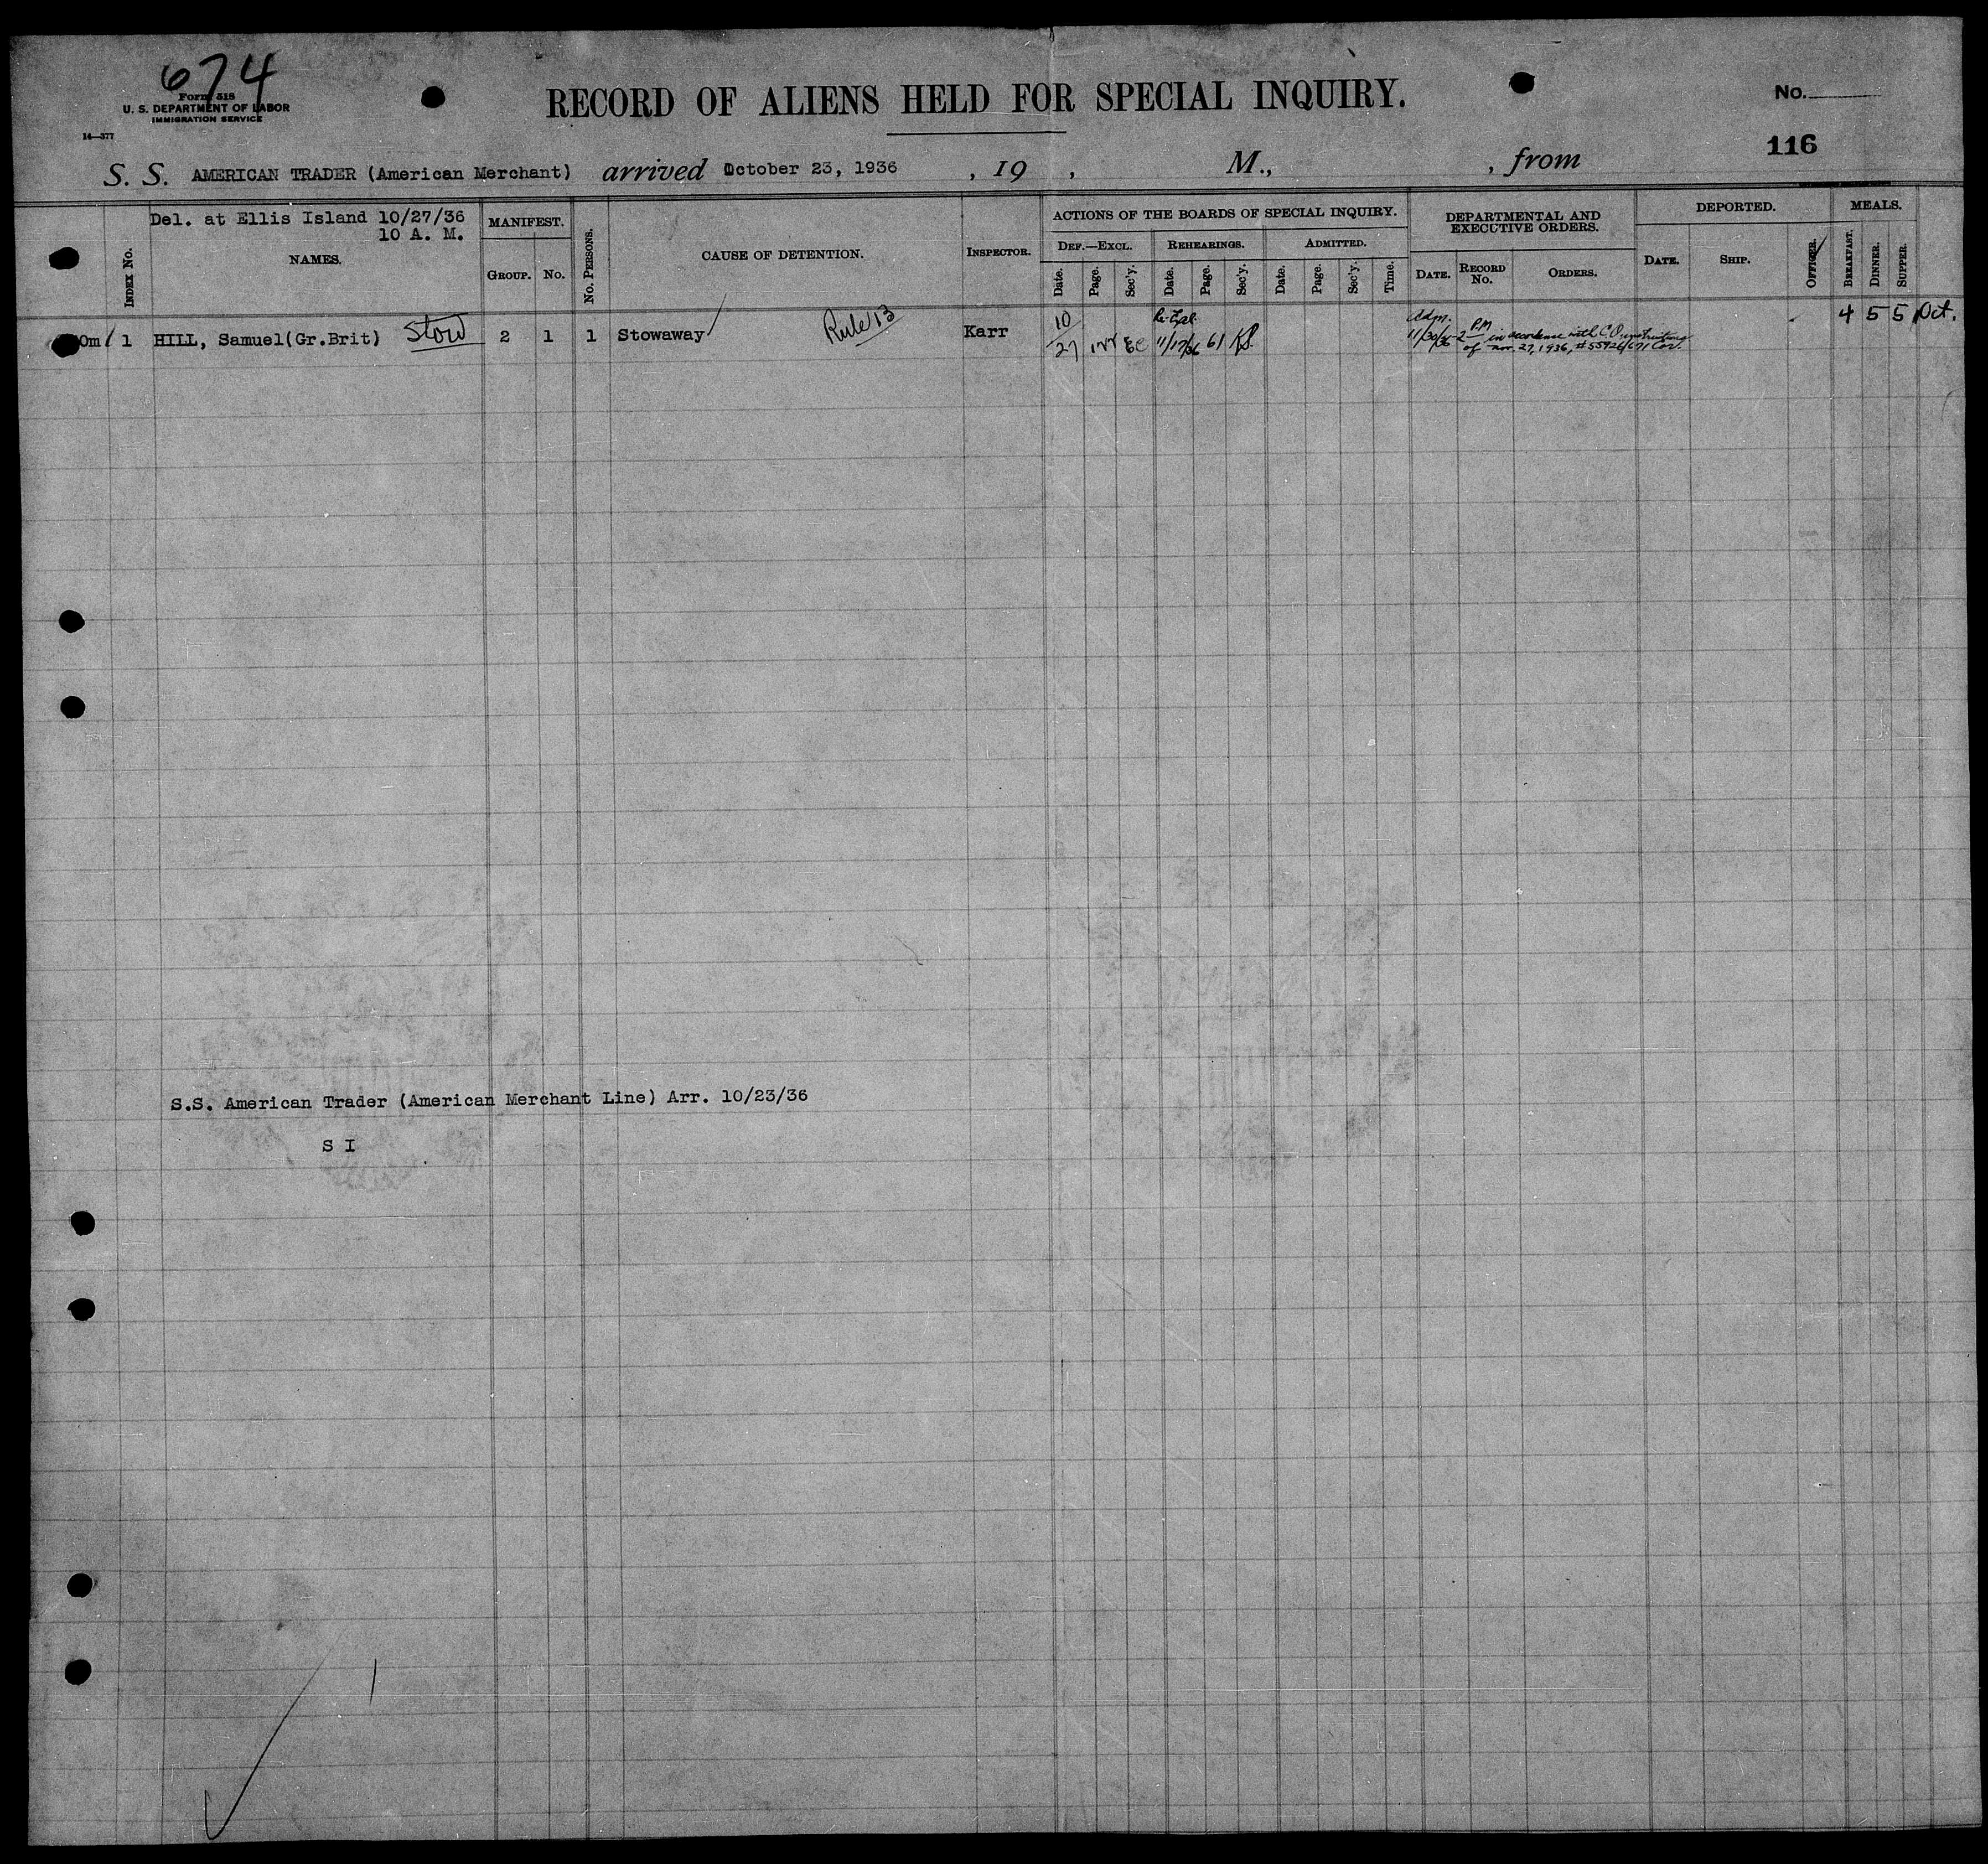 674
Form 518
U. S. DEPARTMENT OF LABOR
IMMIGRATION SERVICE
14—377
RECORD OF ALIENS HELD FOR SPECIAL INQUIRY.
No.
116
S. S. AMERICAN TRADER (American Merchant) arrived October 23, 1936 , 19 , M., , from
Del. at Ellis Island 10/27/36
10 A. M.
INDEX No.
NAMES.
MANIFEST.
GROUP. No.
No. PERSONS.
CAUSE OF DETENTION.
INSPECTOR.
ACTIONS OF THE BOARDS OF SPECIAL INQUIRY.
DEF.—EXCL. REHEARINGS. ADMITTED.
Date. Page. Sec'y. Date. Page. Sec'y. Date. Page. Sec'y. Time.
DEPARTMENTAL AND
EXECUTIVE ORDERS.
DATE. RECORD No. ORDERS.
DEPORTED.
DATE. SHIP. OFFICER.
MEALS.
BREAKFAST. DINNER. SUPPER.
0m 1 HILL, Samuel(Gr.Brit) Stow 2 1 1 Stowaway Rule 13 Karr 10/27 11/17/36 61 4 5 5 Oct.
Adm.
11/30/36 2 PM in accordance with C.O. instructions
of Nov. 27, 1936, #55926/671
S.S. American Trader (American Merchant Line) Arr. 10/23/36
S I
1